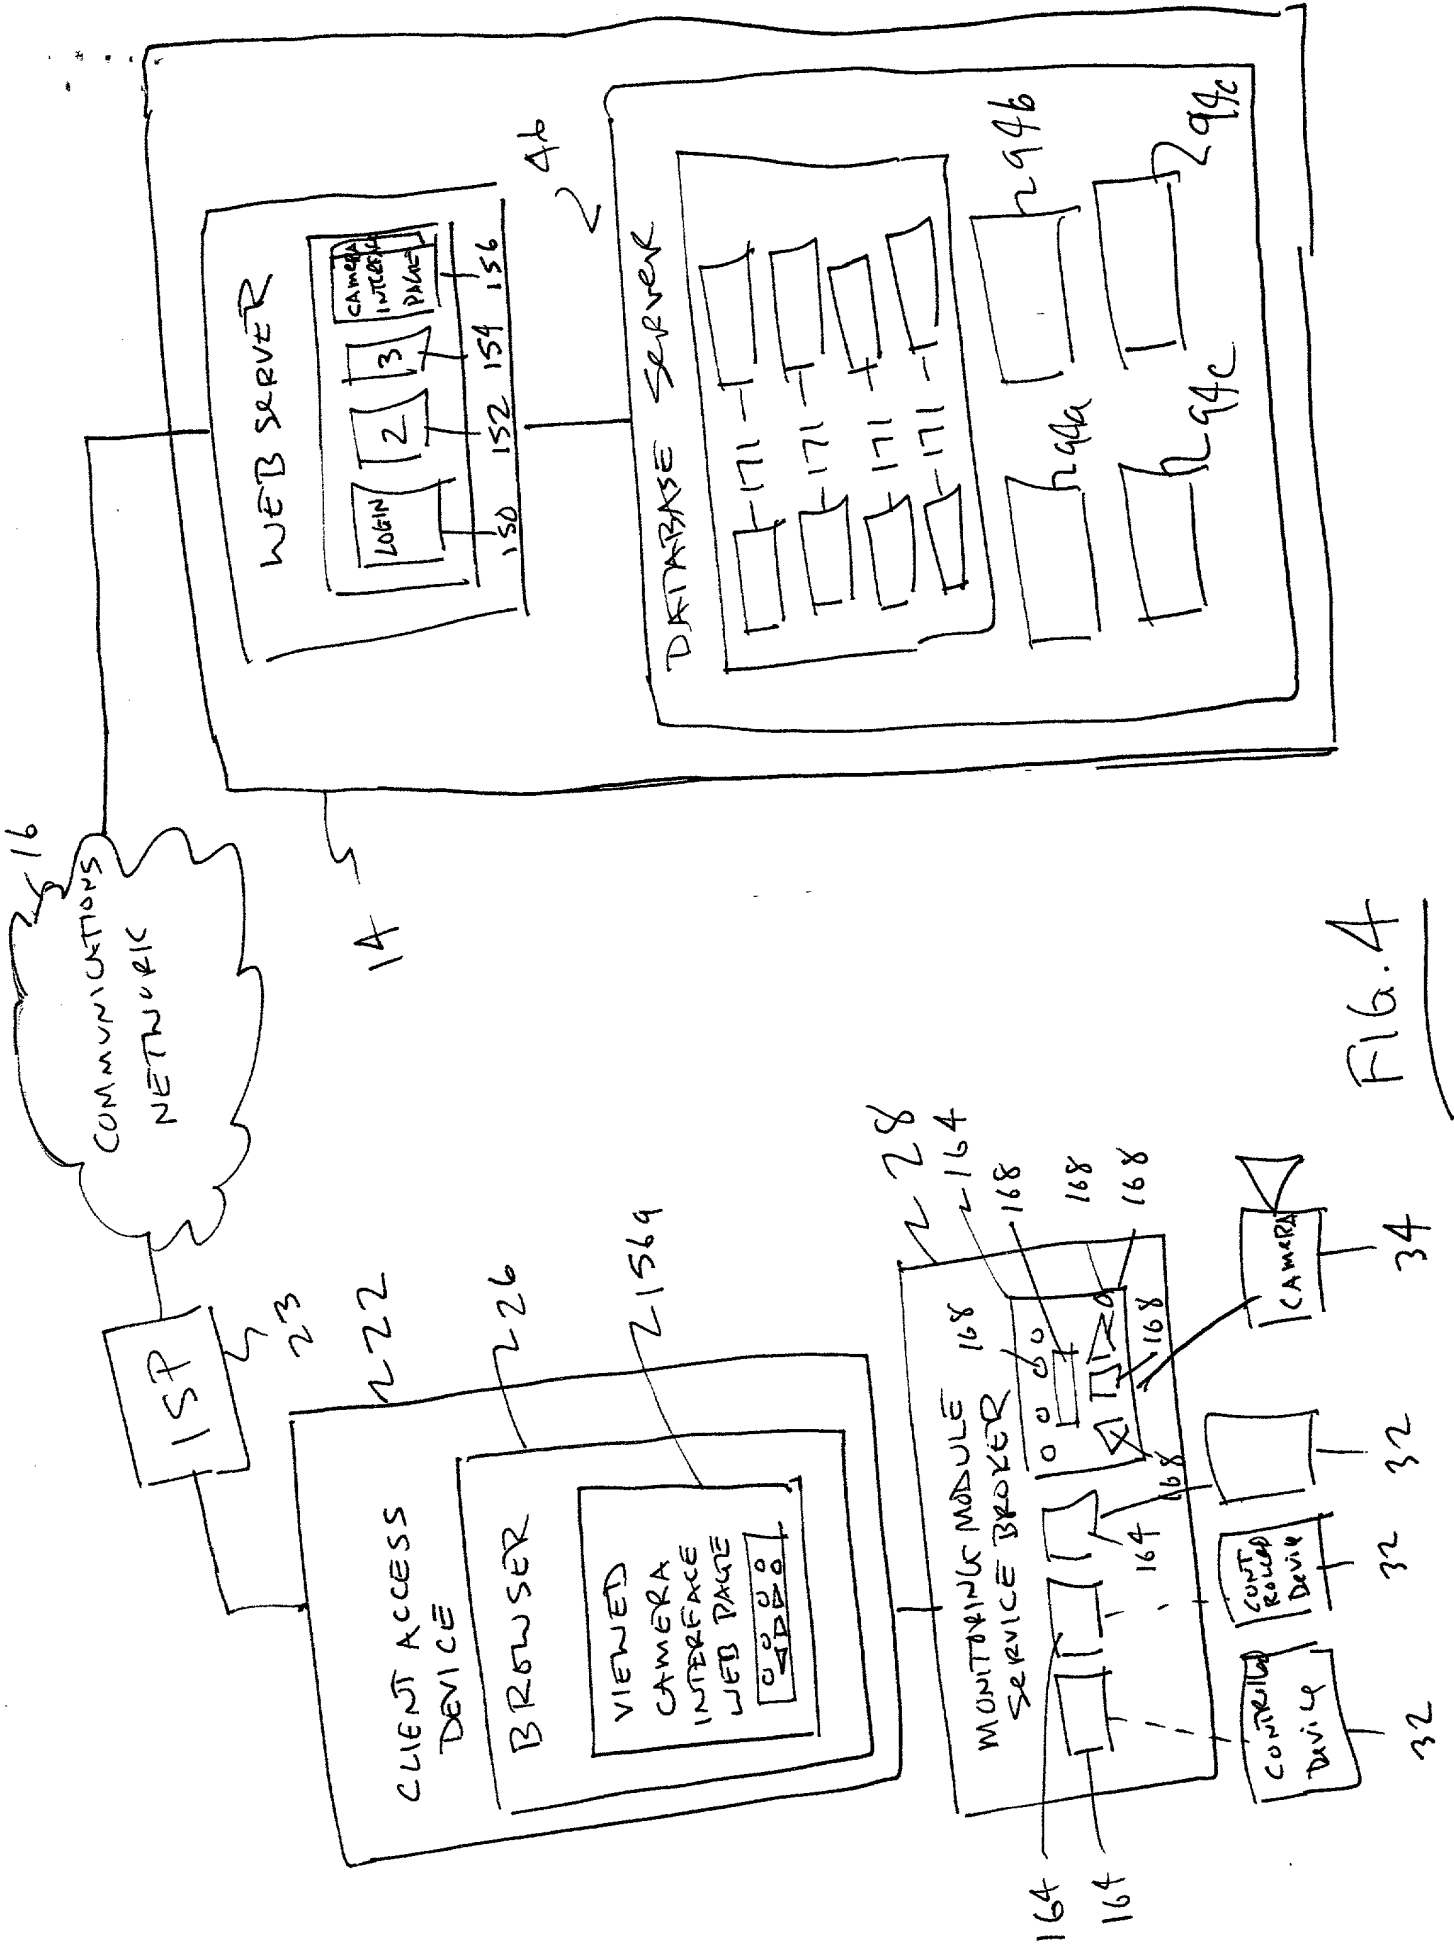 16
COMMUNICATIONS
NETWORK
ISP
23
14
CLIENT ACCESS
DEVICE
22
BROWSER
26
VIEWED
CAMERA
INTERFACE
WEB PAGE
156a
MONITORING MODULE
SERVICE BROKER
28
164
168
168
168
168
168
168
164
164
164
CONTROLLED
DEVICE
32
CONT
ROLLED
DEVICE
32
32
CAMERA
34
WEB SERVER
LOGIN
2
3
CAMERA
INTERFACE
PAGE
150
152
154
156
46
DATABASE SERVER
171
171
171
171
94a
94b
94c
94c
FIG. 4